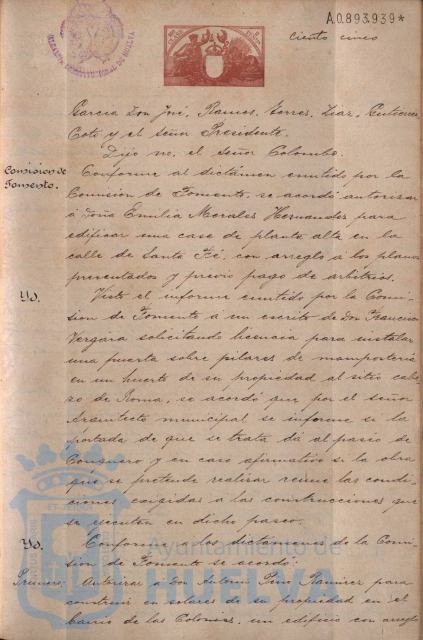 A.0.893.939*
ciento cinco
Garcia Don José, Ramos, Torres, Diaz, Gutierrez
Coto y el Señor Presidente.
Dijo no, el Señor Colombo.
Comision de Fomento.
Conforme al dictámen emitido por la
Comision de Fomento, se acordó autorizar
á Doña Emilia Morales Hernandez para
edificar una casa de planta alta en la
calle de Santa Fé, con arreglo a los planos
presentados y previo pago de arbitrios.
Yd.
Visto el informe emitido por la Comi-
sion de Fomento a un escrito de Don Francisco
Vergara solicitando licencia para instalar
una puerta sobre pilares de mamposteria
en un huerto de su propiedad al sitio cabe-
zo de Roma, se acordó que por el señor
Arquitecto municipal se informe si la
portada de que se trata dá al paseo de
Conquero y en caso afirmativo si la obra
que se pretende realizar reune las condi-
ciones exigidas á las construcciones que
se ejecuten en dicho paseo.
Yd.
Conforme a los dictamenes de la Comi-
sion de Fomento se acordó:
Primero: Autorizar a don Antonio Pino Ramirez para
construir en solares de su propiedad en el
Barrio de las Colonias, un edificio con arreglo
Ayuntamiento de
HUELVA